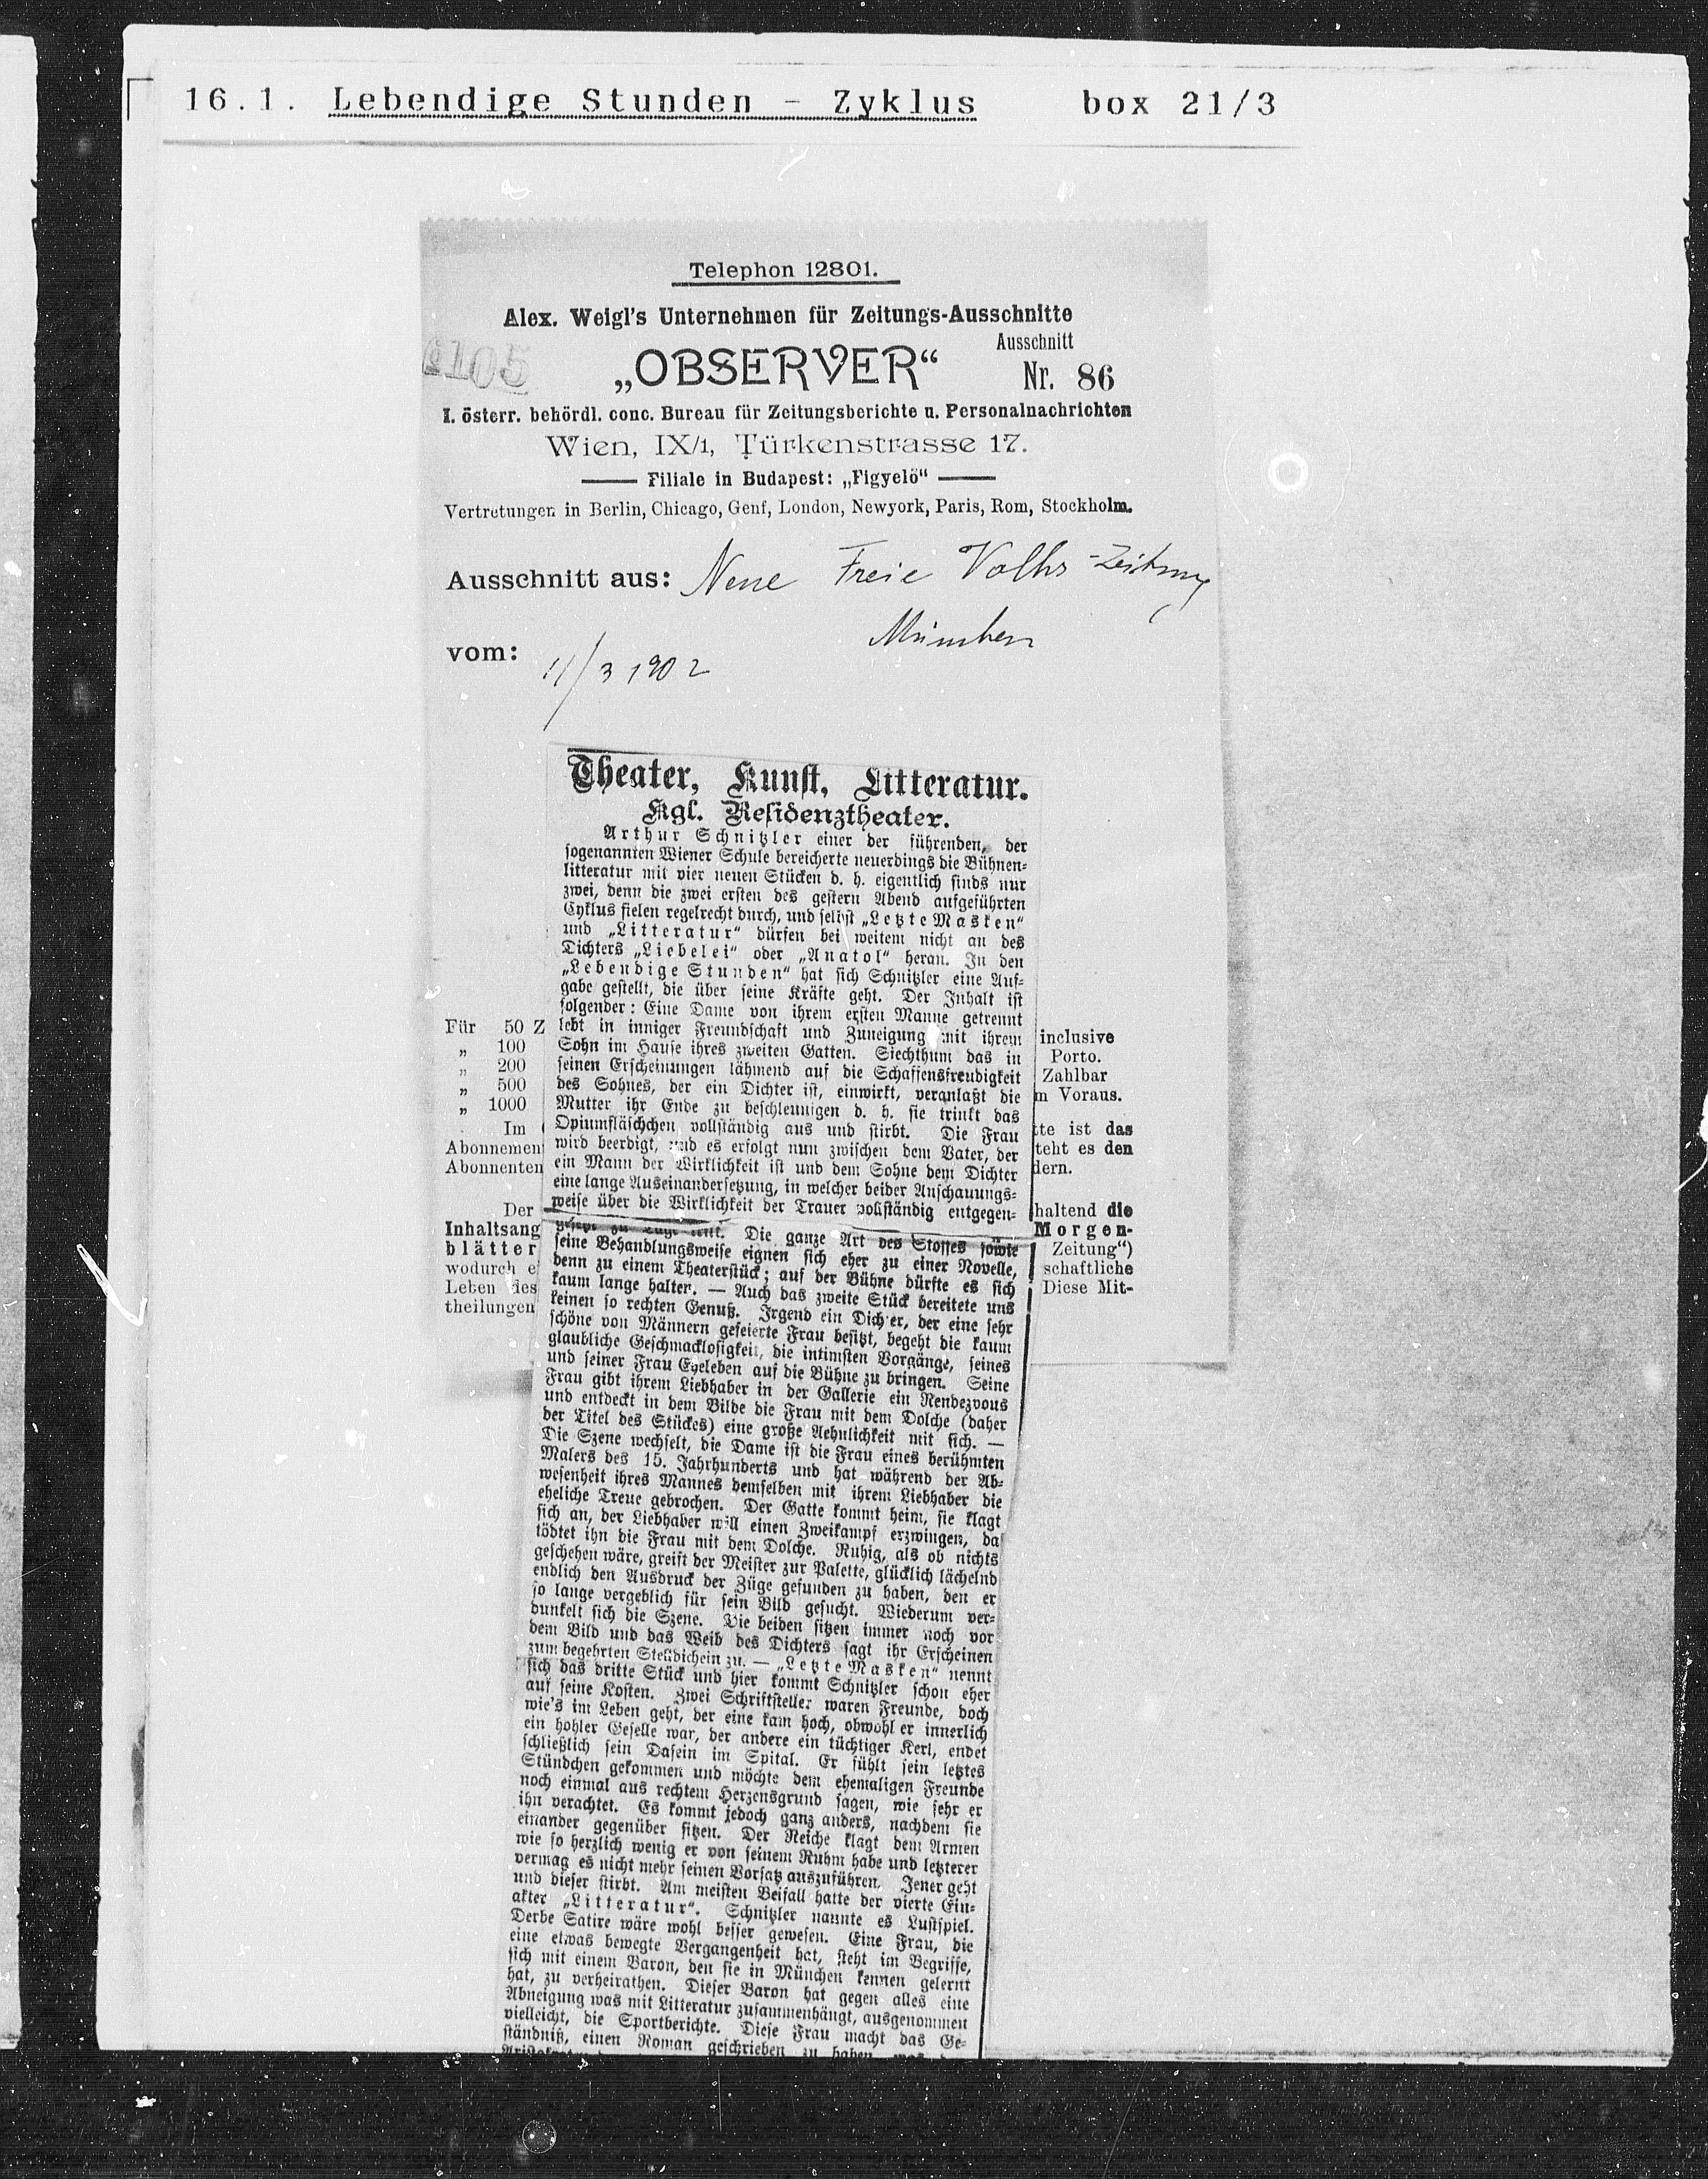 16.1. Lebendige Stunden - Zyklus box 21/3
Telephon 12801.
Alex. Weigl's Unternehmen für Zeitungs-Ausschnitte
105
„OBSERVER“
Ausschnitt
Nr. 86
I. österr. behördl. conc. Bureau für Zeitungsberichte u. Personalnachrichten
Wien, IX/1, Türkenstrasse 17.
Filiale in Budapest: „Figyelö“
Vertretungen in Berlin, Chicago, Genf, London, Newyork, Paris, Rom, Stockholm.
Ausschnitt aus: Neue Freie Volks-Zeitung
München
vom: 11/3 1902
Theater, Kunst, Litteratur.
Kgl. Residenztheater.
Arthur Schnitzler einer der führenden, der
sogenannten Wiener Schule bereicherte neuerdings die Bühnen-
litteratur mit vier neuen Stücken d. h. eigentlich sinds nur
zwei, denn die zwei ersten des gestern Abend aufgeführten
Cyklus fielen regelrecht durch, und selbst „Letzte Masken“
und „Litteratur“ dürfen bei weitem nicht an des
Dichters „Liebelei“ oder „Anatol“ heran. In den
„Lebendige Stunden“ hat sich Schnitzler eine Auf-
gabe gestellt, die über seine Kräfte geht. Der Inhalt ist
folgender: Eine Dame von ihrem ersten Manne getrennt
lebt in inniger Freundschaft und Zuneigung mit ihrem
Sohn im Hause ihres zweiten Gatten. Siechthum das in
seinen Erscheinungen lähmend auf die Schaffensfreudigkeit
des Sohnes, der ein Dichter ist, einwirkt, veranlaßt die
Mutter ihr Ende zu beschleunigen d. h. sie trinkt das
Opiumfläschchen vollständig aus und stirbt. Die Frau
wird beerdigt, und es erfolgt nun zwischen dem Vater, der
ein Mann der Wirklichkeit ist und dem Sohne dem Dichter
eine lange Auseinandersetzung, in welcher beider Anschauungs-
weise über die Wirklichkeit der Trauer vollständig entgegen-
gesetzt zu Tage tritt. Die ganze Art des Stoffes sowie
seine Behandlungsweise eignen sich eher zu einer Novelle,
denn zu einem Theaterstück; auf der Bühne dürfte es sich
kaum lange halten. — Auch das zweite Stück bereitete uns
keinen so rechten Genuß. Irgend ein Dichter, der eine sehr
schöne von Männern gefeierte Frau besitzt, begeht die kaum
glaubliche Geschmacklosigkeit, die intimsten Vorgänge, seines
und seiner Frau Eheleben auf die Bühne zu bringen. Seine
Frau gibt ihrem Liebhaber in der Gallerie ein Rendezvous
und entdeckt in dem Bilde die Frau mit dem Dolche (daher
der Titel des Stückes) eine große Aehnlichkeit mit sich. —
Die Szene wechselt, die Dame ist die Frau eines berühmten
Malers des 15. Jahrhunderts und hat während der Ab-
wesenheit ihres Mannes demselben mit ihrem Liebhaber die
eheliche Treue gebrochen. Der Gatte kommt heim, sie klagt
sich an, der Liebhaber will einen Zweikampf erzwingen, da
tödtet ihn die Frau mit dem Dolche. Ruhig, als ob nichts
geschehen wäre, greift der Meister zur Palette, glücklich lächelnd
endlich den Ausdruck der Züge gefunden zu haben, den er
so lange vergeblich für sein Bild gesucht. Wiederum ver-
dunkelt sich die Szene. Die beiden sitzen immer noch vor
dem Bild und das Weib des Dichters sagt ihr Erscheinen
zum begehrten Stelldichein zu. — „Letzte Masken“ nennt
sich das dritte Stück und hier kommt Schnitzler schon eher
auf seine Kosten. Zwei Schriftsteller waren Freunde, doch
wie's im Leben geht, der eine kam hoch, obwohl er innerlich
ein hohler Geselle war, der andere ein tüchtiger Kerl, endet
schließlich sein Dasein im Spital. Er fühlt sein letztes
Stündchen gekommen und möchte dem ehemaligen Freunde
noch einmal aus rechtem Herzensgrund sagen, wie sehr er
ihn verachtet. Es kommt jedoch ganz anders, nachdem sie
einander gegenüber sitzen. Der Reiche klagt dem Armen
wie so herzlich wenig er von seinem Ruhm habe und letzterer
vermag es nicht mehr seinen Vorsatz auszuführen. Jener geht
und dieser stirbt. Am meisten Beifall hatte der vierte Ein-
akter „Litteratur“. Schnitzler nannte es Lustspiel.
Derbe Satire wäre wohl besser gewesen. Eine Frau, die
eine etwas bewegte Vergangenheit hat, steht im Begriffe,
sich mit einem Baron, den sie in München kennen gelernt
hat, zu verheirathen. Dieser Baron hat gegen alles eine
Abneigung was mit Litteratur zusammenhängt, ausgenommen
vielleicht, die Sportberichte. Diese Frau macht das Ge-
ständniß, einen Roman geschrieben zu haben
Für 50 Z
„ 100
„ 200
„ 500
„ 1000
Im
Abonnemen
Abonnenten
Der
Inhaltsang
blätter
wodurch e
Leben des
theilungen
inclusive
Porto.
Zahlbar
m Voraus.
tte ist das
teht es den
dern.
haltend die
Morgen-
Zeitung“)
schaftliche
Diese Mit-